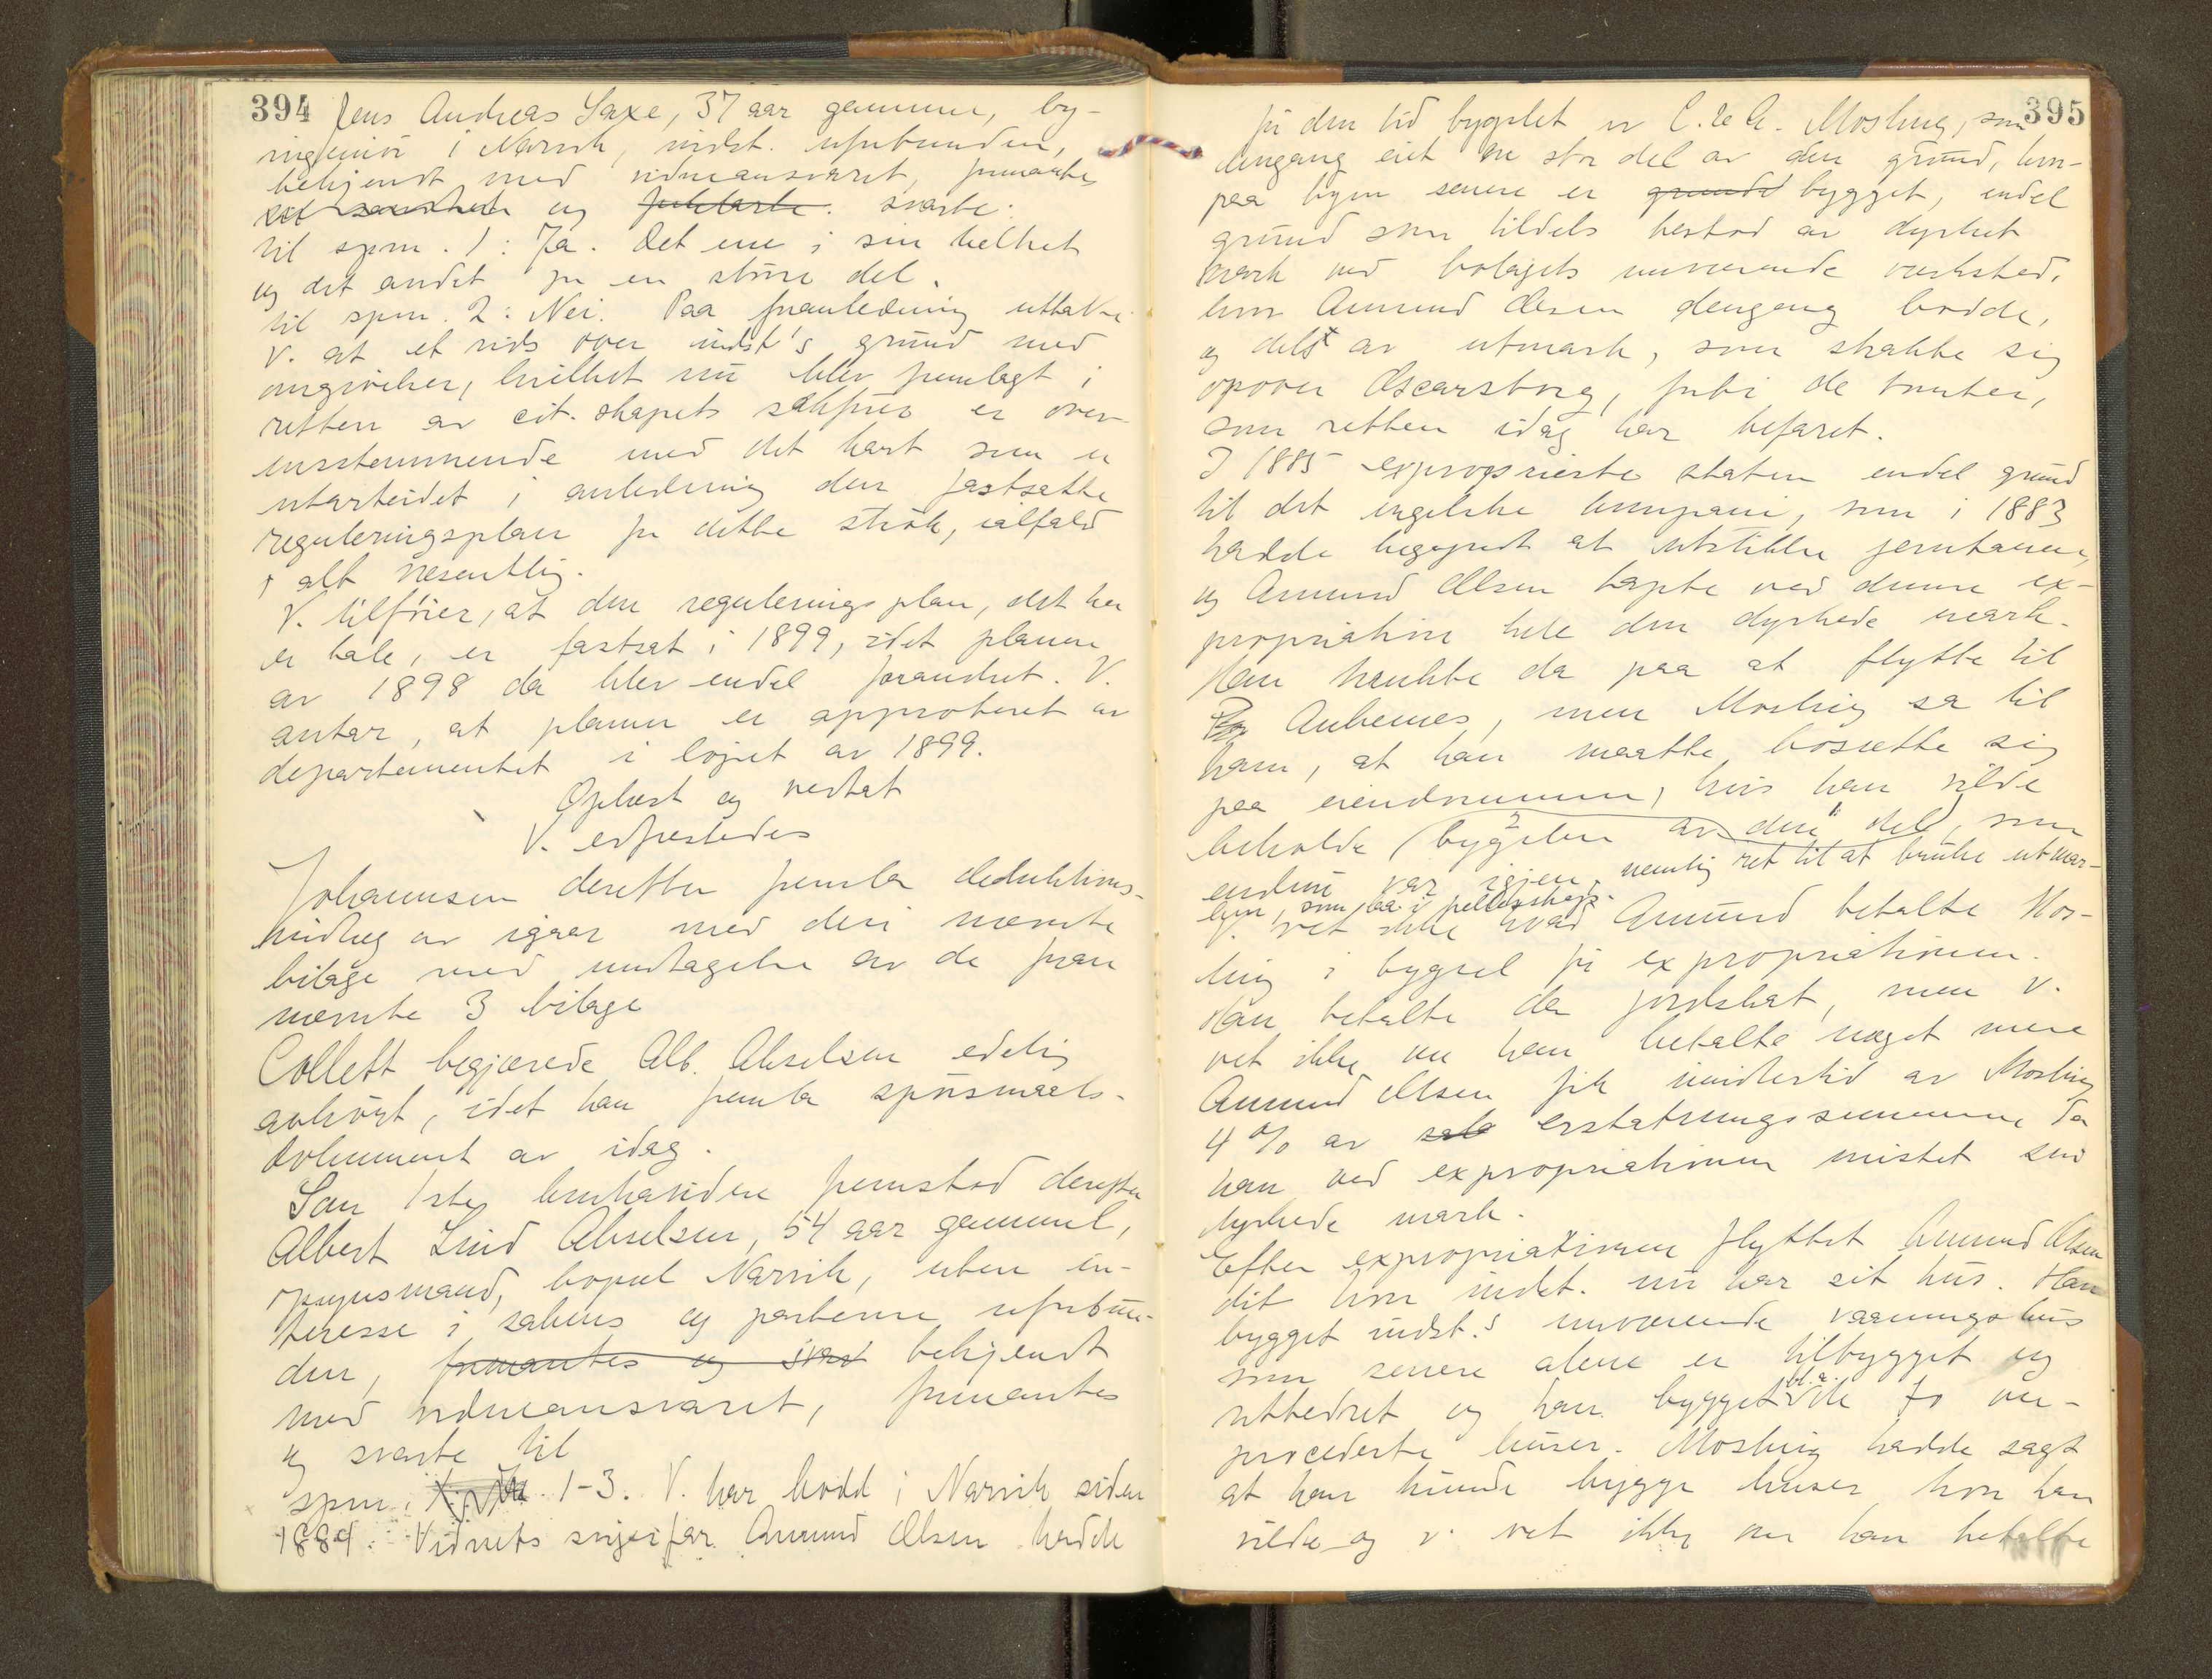 394
Jens Andreas Saxe, 37 aar gammel, by-
ingeniør i Narvik, indst. uforbunden,
bekjendt med vidneansvaret, formantes
og svarte:
til spm. 1: Ja. Det ene i sin helhet
og det andet for en større del.
til spm. 2: Nei. Paa foranledning uttaler
V. at et rids over indst's grund med
omgivelser, hvilket nu blev fremlagt i
retten av cit. skapets sakfører er over-
ensstemmende med det kart som er
utarbeidet i anledning den fastsatte
reguleringsplan for dette strøk, ialfald
i alt væsentlig.
V. tilføier, at den reguleringsplan, det her
er tale, er fastsat i 1899, idet planen
av 1898 da blev endel forandret. V.
antar, at planen er approberet av
departementet i løpet av 1899.
Oplæst og vedtat
V. edfæstedes
Johannsen derefter fremla deduktions-
indlæg av igaar med deri nævnte
bilage med undtagelse av de foran
nævnte 3 bilage
Collett begjærede Alb. Akselsen edelig
avhørt, idet han fremla spørsmaals-
dokument av idag.
Som 1ste hovedvidne fremstod derefter
Albert Lind Akselsen, 54 aar gammel,
opsynsmand, bopæl Narvik, uten in-
teresse i sakens og parterne uforbun-
den, formantes og svar bekjendt
med vidneansvaret, formantes
og svarte til
spm. 1-3. V. har bodd i Narvik siden
1884. Vidnets svigerfar Amund Olsen hadde
395
før den tid bygslet av C. & A. Mosling, som
dengang eiet en stor del av den grund, hvor-
paa byen senere er grundl bygget, endel
grund som tildels bestod av dyrket
mark ved bolagets nuværende verksted,
hvor Amund Olsen dengang bodde,
og dels av utmark, som strakte sig
opover Oscarsborg, forbi de tomter,
som retten idag har befaret.
I 1885 exproprierte staten endel grund
til det engelske kompani, som i 1883
hadde begyndt at utstikke jernbanen,
og Amund Olsen tapte ved denne ex-
propriation hele den dyrkede mark.
Han tænkte da paa at flytte til
Ankenes, men Mosling sa til
ham, at han maatte bosætte sig
paa eiendommen, hvis han vilde
beholde bygslen av den del, som
endnu var igjen, nemlig ret til at bruke utmar-
ken, som laa i fellesskap.
V. vet ikke hvad Amund betalte Mos-
ling i bygsel før expropriationen.
Han betalte da jordskat, men V.
vet ikke om han betalte noget mere
Amund Olsen fik imidlertid av Mosling
4 % av erstatningssummen, da
han ved expropriationen mistet sin
dyrkede mark.
Efter expropriationen flyttet Amund Olsen
dit hvor indst. nu har sit hus. Han
bygget indst.s nuværende vaaningshus
som senere alene er tilbygget og
utbedret og han bygget bl. a. de to om-
procederte huser. Mosling hadde sagt
at han kunde bygge huser hvor han
vilde og v. vet ikke om han betalte